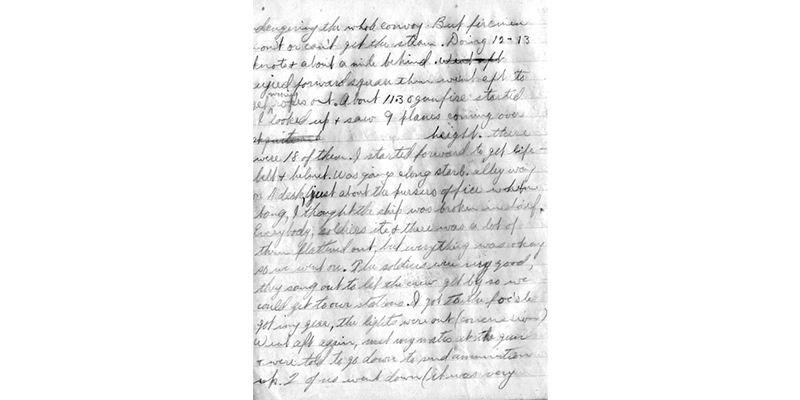 dangering the whole convoy. But firemen
won't or can't get the steam. Doing 12-13
knots & about a mile behind. went aft
rigged forward span then went aft to
ropes out. About 1130 gunfire started
mooring
I looked up & saw 9 planes coming over
height. there
were 18 of them. I started forward to get life-
belt & helmet. Was going along starb. alley way
on A deck, just about the pursers office when
bang, I thought the ship was broken in half.
Everybody, soldiers etc & there was a lot of
them flattened out, but everything was okay
so we went on. The soldiers were very good,
they sang out to let the crew get by so we
could get to our stations. I got to the foc'sle
got my gear, the lights were out
Went aft again, met my mates at the gun
& were told to go down to send ammunition
up. 2 of us went down (it was very